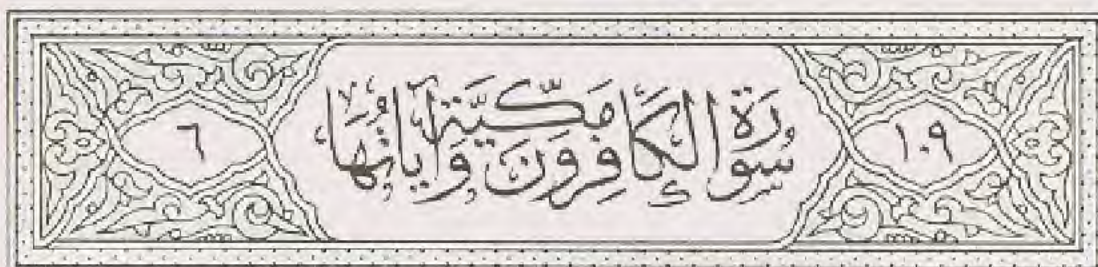 ١٠٩
سُورَةُ الْكَافِرُونَ مَكِّيَّة وَآيَاتُهَا
٦